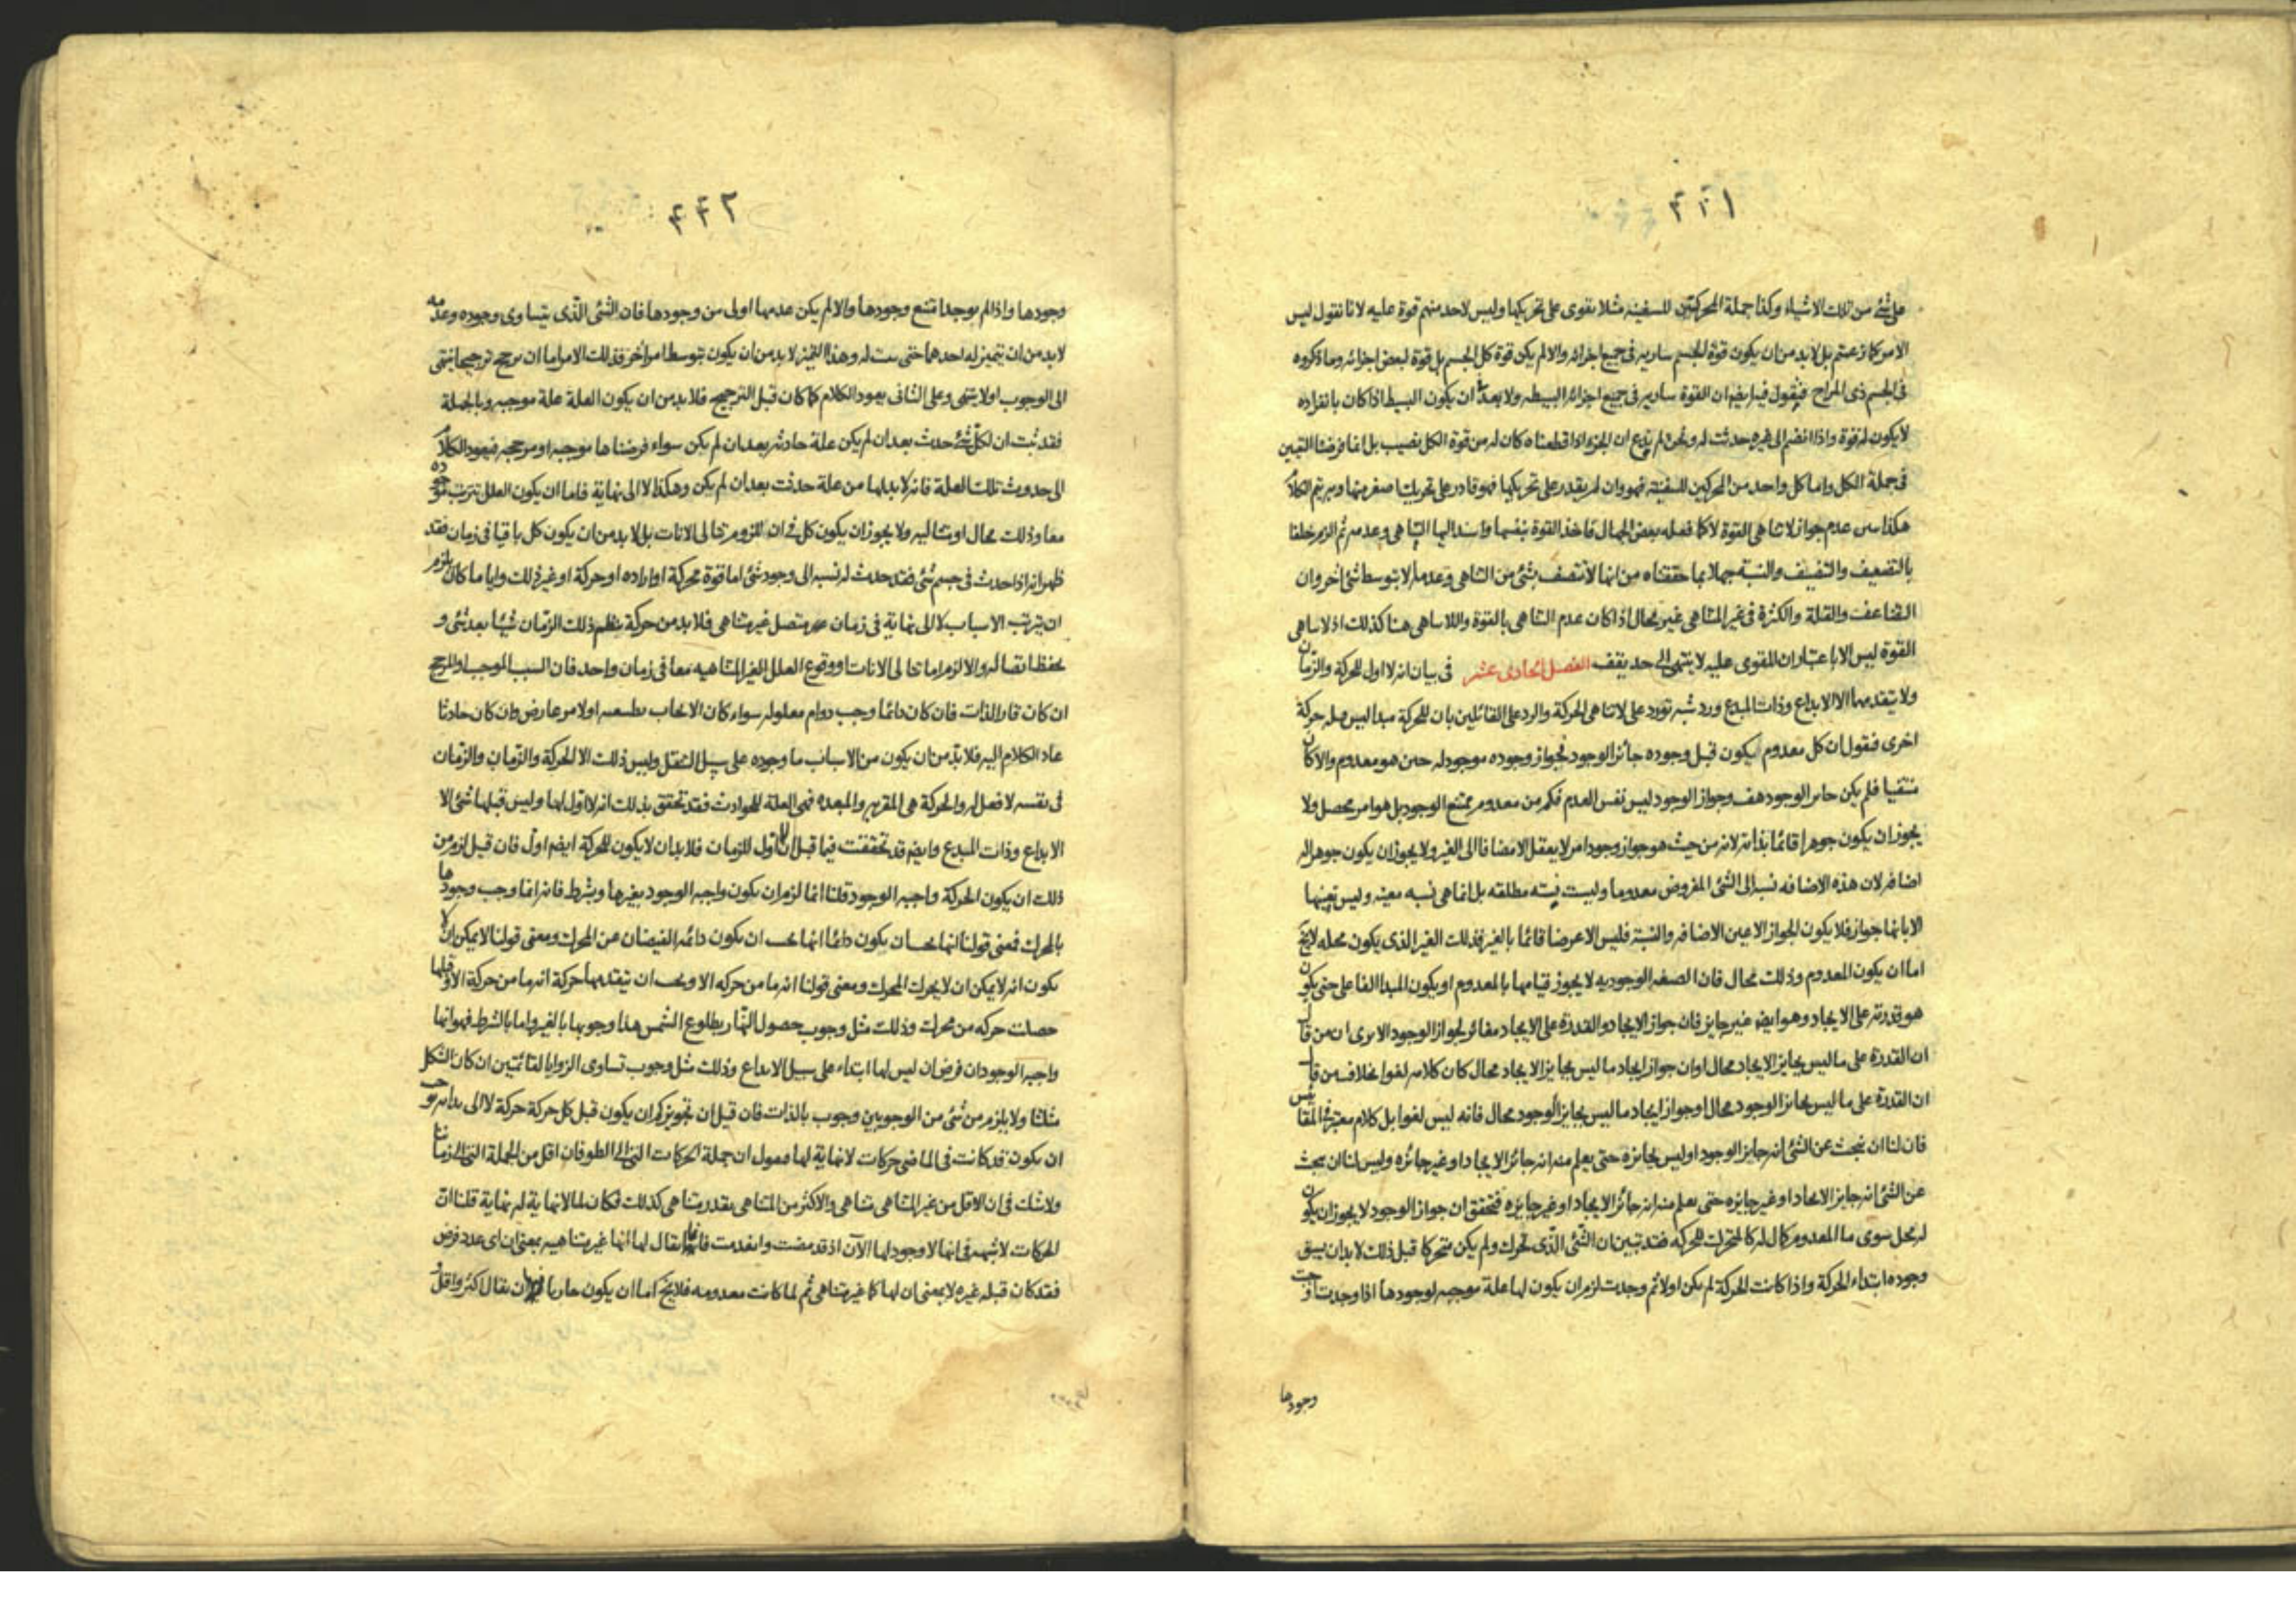 ۴۴۱
على شئ من تلك الاشياء وكذا جملة المحركين للسفينة مثلا يقوى على تحريكها وليس لاحد منهم قوة عليه لانا نقول ليس
الامر كما زعمتم بل لا بد من ان يكون قوة الجسم سارية فى جميع اجزائه والا لم يكن قوة كل الجسم بل قوة لبعض اجزائه وما ذكروه
فى الجسم ذى المزاج فيقول فيه ايضا ان القوة سارية فى جميع اجزائه البسيطه ولا بعد ان يكون البسيط اذا كان بانفراده
لا يكون له قوة واذا انضم الى غيره حدثت له ونحن لم ندع ان الجزء اذا قطعناه كان له من قوة الكل نصيب بل انما فرضنا التعيين
فى جملة الكل واما كل واحد من المحركين للسفينة فهو وان لم يقدر على تحريكها فهو قادر على تحريك اصغر منها وبه يتم الكلام
هكذا عدم جواز لا تناهى القوة لا كما فعله بعض الجهال فاخذ القوة بنفسها واسند اليها التناهى وعدمه ثم الزم خلفا
بالتضعيف والتنصيف والنسبة جهلا بما حققناه من انها لا تتصف بشئ من التناهى وعدمه الا بتوسط شئ اخر وان
التضاعف والقلة والكثرة فى غير المتناهى غير محال اذا كان عدم التناهى بالقوة واللاتناهى هنا كذلك اذ لا تناهى
القوة ليس الا باعتبار ان المقوى عليه لا ينتهى الى حد يقف الفصل الحادى عشر فى بيان انه لا اول للحركة والزمان
ولا يتقدمهما الا الابداع وذات المبدع ورد شبه تورد على لا تناهى الحركة والرد على القائلين بان للحركة مبدا ليس قبله حركة
اخرى فنقول ان كل معدوم يكون قبل وجوده جائز الوجود فجواز وجوده موجود له حين هو معدوم والا كان
منتفيا فلم يكن جايز الوجود هف وجواز الوجود ليس نفس العدم فكم من معدوم ممتنع الوجود بل هو امر محصل ولا
يجوز ان يكون جوهرا قائما بذاته لانه من حيث هو جواز وجود امر لا يعقل الا مضافا الى الغير ولا يجوز ان يكون جوهرا له
اضافه لان هذه الاضافه نسبة الى الشئ المفروض معدوما وليست نسبته مطلقه بل انما هى نسبه معينه وليس تعينها
الا بانها جواز فلا يكون الجواز الا عين الاضافه والنسبة فليس الا عرضا قائما بالغير فذلك الغير الذى يكون محله لا يخ
اما ان يكون المعدوم وذلك محال فان الصفه الوجوديه لا يجوز قيامها بالمعدوم او يكون المبدا الفاعلى حتى يكون
هو قدرته على الايجاد وهو ايضا غير جايز فان جواز الايجاد والقدرة على الايجاد مغائر لجواز الوجود الا يرى ان من قال
ان القدرة على ما ليس بجايز الايجاد محال او ان جواز ايجاد ما ليس بجايز الايجاد محال كان كلامه لغوا بخلاف من قال
ان القدرة على ما ليس بجايز الوجود محال او جواز ايجاد ما ليس بجايز الوجود محال فانه ليس لغوا بل كلام معتبر فى المقاييس
فان لنا ان نبحث عن الشئ انه جايز الوجود او ليس بجايزه حتى يعلم منه انه جائز الايجاد او غير جائزه وليس لنا ان نبحث
عن الشئ انه جايز الايجاد او غير جايزه حتى يعلم منه انه جائز الايجاد او غير جايزه فتحقق ان جواز الوجود لا يجوز ان يكون
له محل سوى ما المعدوم كمال له كالمتحرك للحركه فقد تبين ان الشئ الذى تحرك ولم يكن متحركا قبل ذلك لا بد ان يسبق
وجوده ابتداء الحركة واذا كانت الحركة لم يكن اولا ثم وجدت لزم ان يكون لها علة موجبه لوجودها اذا وجدت وجب
وجودها
۴۴۲
وجودها واذا لم يوجد امتنع وجودها والا لم يكن عدمها اولى من وجودها فان الشئ الذى يتساوى وجوده وعدمه
لا بد من ان يتميز له احدهما حتى يثبت له وهذا التميز لا بد من ان يكون بتوسط امر اخر فذلك الامر اما ان يرجح ترجيحا ينتهى
الى الوجوب او لا ينتهى وعلى الثانى يعود الكلام كما كان قبل الترجيح فلا بد من ان يكون العلة علة موجبه وبالجملة
فقد ثبت ان لكل شئ حدث بعد ان لم يكن علة حادثه بعد ان لم يكن سواء فرضناها موجبه او مرجحه فيعود الكلام
الى حدوث تلك العلة فانه لا بد لها من علة حدثت بعد ان لم يكن وهكذا لا الى نهاية فاما ان يكون العلل تترتب موجوده
معا وذلك محال او متتاليه ولا يجوز ان يكون كل فى ان للزوم تتالى الانات بل لا بد من ان يكون كل باقيا فى زمان فقد
ظهر انه اذا حدث فى جسم شئ فقد حدث له نسبه الى وجود شئ اما قوة محركة او اراده او حركة او غير ذلك وايا ما كان يلزم
ان يترتب الاسباب لا الى نهاية فى زمان متصل غير متناهى فلا بد من حركة ينظم ذلك الزمان شيئا بعد شئ و
يحفظ اتصاله والا لزم اما تتالى الانات او وقوع العلل الغير المتناهيه معا فى زمان واحد فان السبب الموجب او المرجح
ان كان قار الذات فان كان دائما وجب دوام معلوله سواء كان الايجاب بطبعه او لامر عارض وان كان حادثا
عاد الكلام اليه فلا بد من ان يكون من الاسباب ما وجوده على سبيل التنقل وليس ذلك الا الحركة والزمان والزمان
فى نفسه لا فعل له والحركة هى المقربه والمبعده فهى العلة للحوادث فقد تحقق بذلك انه لا اول لها وليس قبلها شئ الا
الابداع وذات المبدع وايضا قد تحققت فيما قبل ان لا اول للزمان فلا بد ان لا يكون للحركة ايضا اول فان قيل لزم من
ذلك ان يكون الحركة واجبه الوجود قلنا انما لزم ان يكون واجبه الوجود بغيرها وبشرط فانه انما وجب وجودها
بالمحرك فمعنى قولنا انها يجب ان يكون دائما انها يجب ان يكون دائمه الفيضان عن المحرك ومعنى قولنا لا يمكن ان لا
يكون انه لا يمكن ان لا يحرك المحرك ومعنى قولنا انه ما من حركه الا ويجب ان تتقدمها حركة انه ما من حركة الا وقبلها
حصلت حركه من محرك وذلك مثل وجوب حصول النهار بطلوع الشمس هذا وجوبها بالغير واما بالشرط فهو انها
واجبه الوجود ان فرض ان ليس لها ابتداء على سبيل الابداع وذلك مثل وجوب تساوى الزوايا لقائمتين ان كان الشكل
مثلثا ولا يلزم من شئ من الوجوبين وجوب بالذات فان قيل ان تجويزكم ان يكون قبل كل حركة حركة لا الى بدايه يوجب
ان يكون قد كانت فى الماضى حركات لا نهاية لها فنقول ان جملة الحركات التى الى الطوفان اقل من الجملة التى الى زماننا
ولا شك فى ان الاقل من غير المتناهى متناهى والاكثر من المتناهى بقدر متناهى كذلك فكان لما لا نهاية له نهاية قلنا ان
الحركات لا شبهه فى انها لا وجود لها الآن اذ قد مضت وانعدمت فانما يقال لها انها غير متناهيه بمعنى ان اى عدد فرض
فقد كان قبله غيره لا بمعنى ان لها كما غير متناهى ثم لما كانت معدومه فلا يخ اما ان يكون جايزا ان يقال اكثر واقل